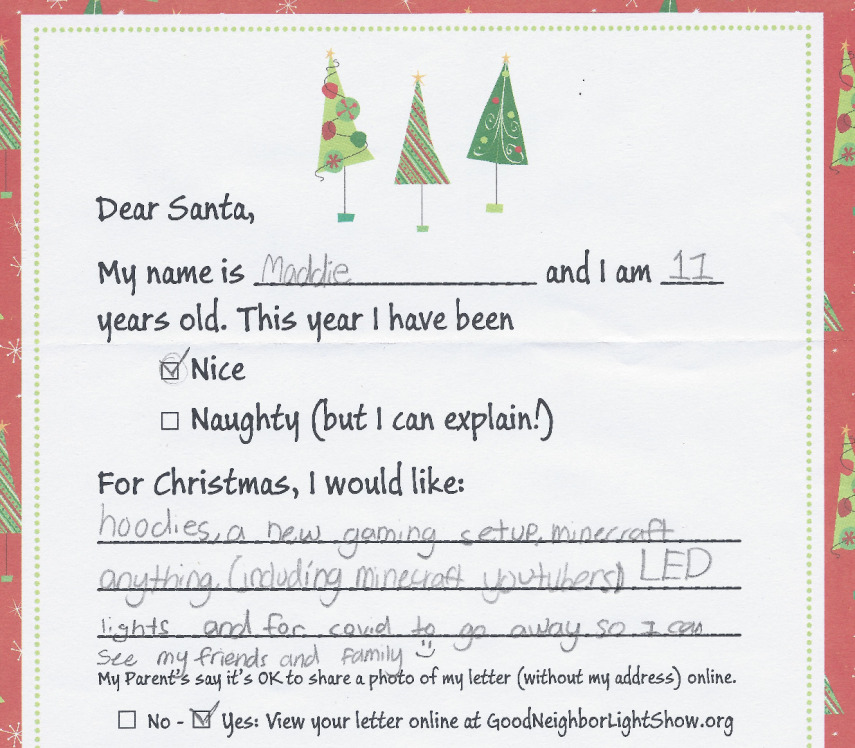 Dear Santa,
My name is Maddie and I am 11
years old. This year I have been
☑ Nice
☐ Naughty (but I can explain!)
For Christmas, I would like:
hoodies, a new gaming setup, minecraft
anything, (including minecraft youtubers) LED
lights and for covid to go away so I can
see my friends and family :)
My Parent's say it's OK to share a photo of my letter (without my address) online.
☐ No - ☑ Yes: View your letter online at GoodNeighborLightShow.org